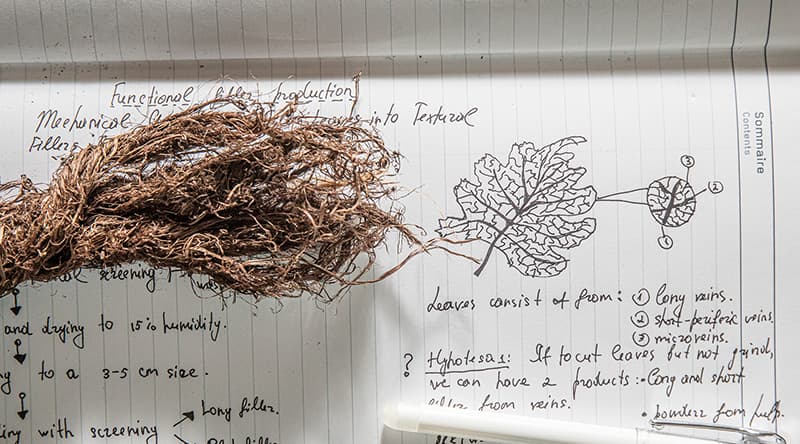 Functional fiber production
Mechanical into Textural
Fillers
screening
and drying to 15% humidity.
to a 3-5 cm size.
with screening
Long filler.
Sommaire
Contents
3
2
1
Leaves consist of from: 1 long veins.
2 short-periferic veins.
3 microveins.
? Hypotesa 1: If to cut leaves but not grind,
we can have 2 products: • long and short
filler from veins.
• powders from pulp.